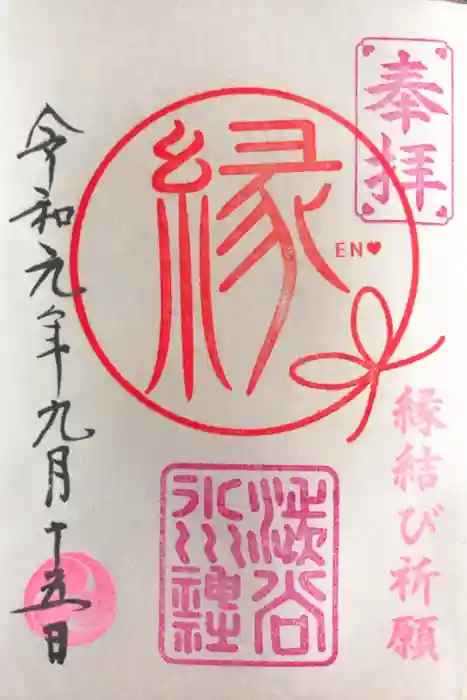 奉拝
縁結び祈願
縁
EN♥
渋谷
氷川神社
令和元年九月十五日